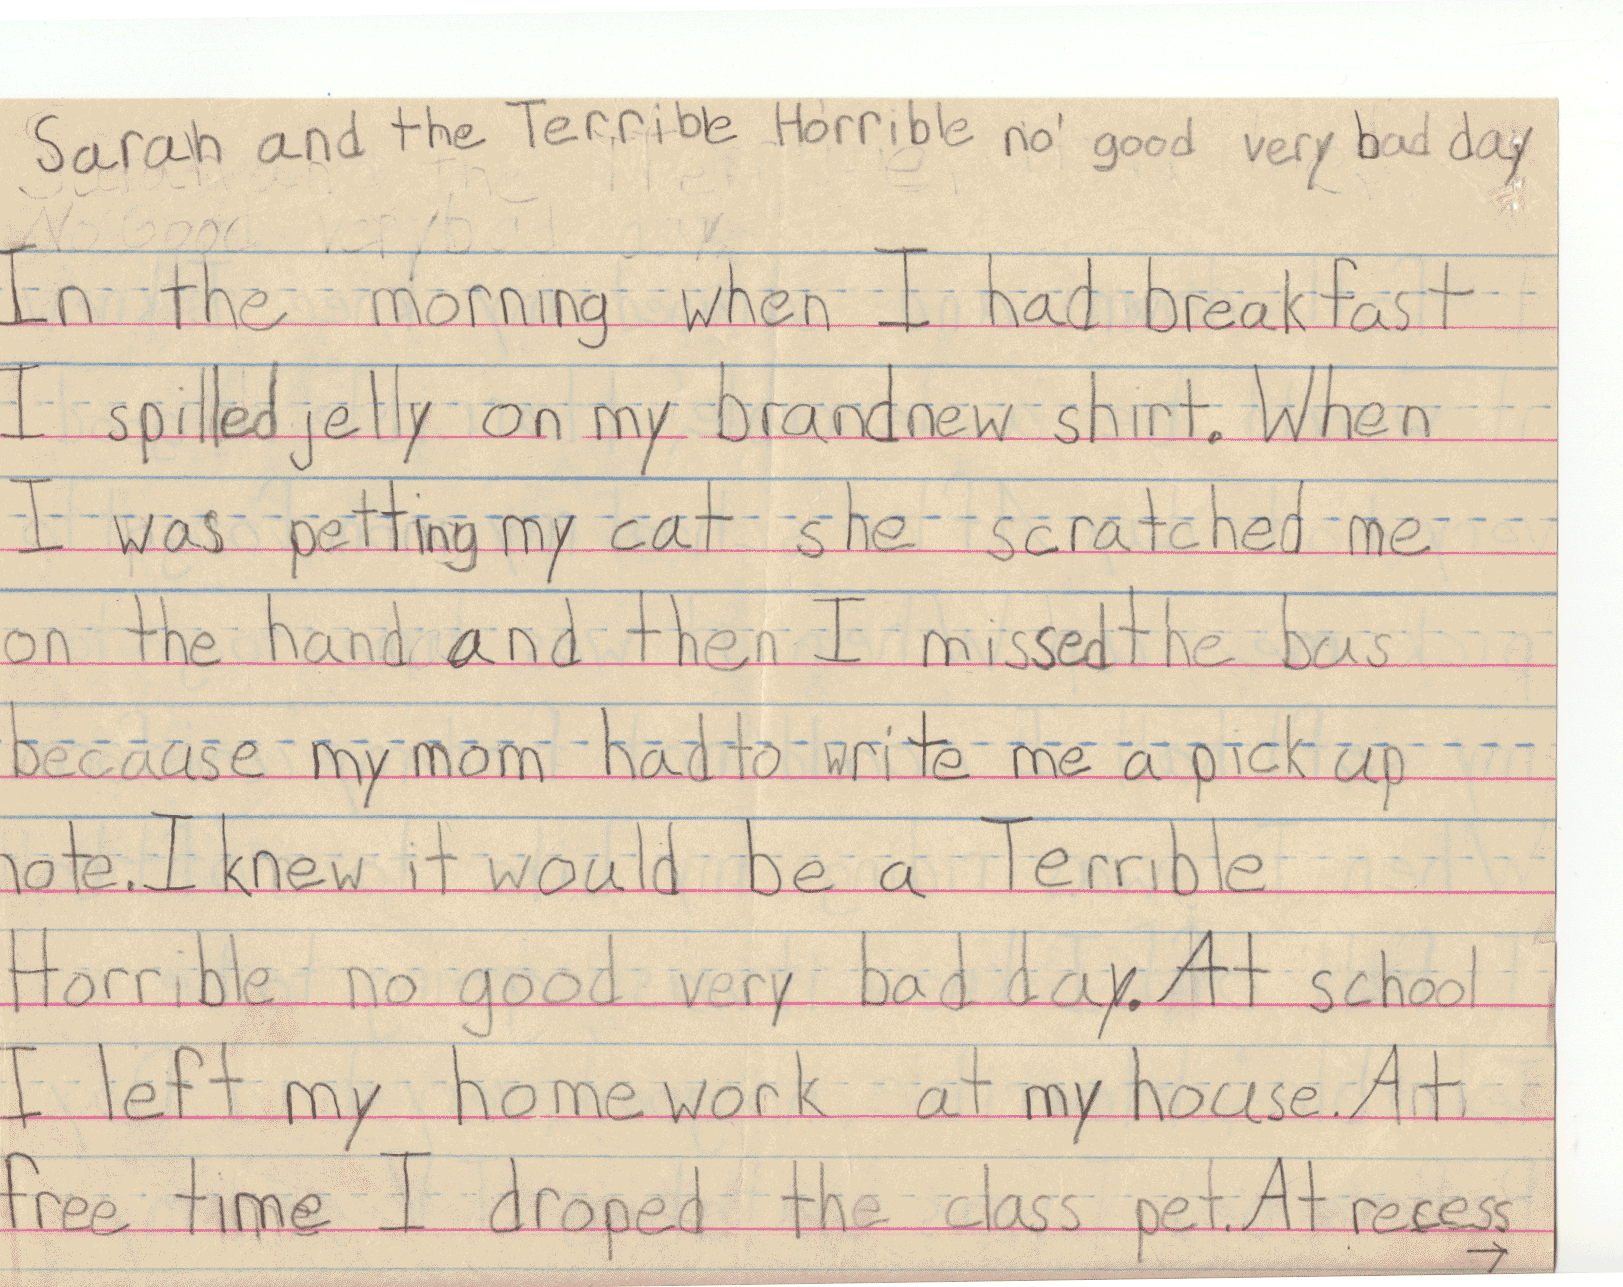 Sarah and the Terrible Horrible no good very bad day
No Good very bad day
In the morning when I had breakfast
I spilled jelly on my brandnew shirt. When
I was petting my cat she scratched me
on the hand and then I missed the bus
because my mom had to write me a pick up
note. I knew it would be a Terrible
Horrible no good very bad day. At school
I left my home work at my house. At
free time I droped the class pet. At recess
→